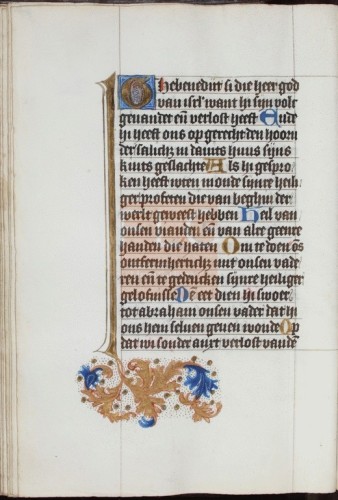 Ghebenedijt si die heer god
van isrl want hi sijn volc
geuander en̄ verlost heeft Ende
hi heeft ons op gerecht den hoorn
der salich; in dauits huus sijns
kints geslachte Als hi gespro
ken heeft ouermids monde sijnre heili
ger profeten die van beghin der
werlt geweest hebben Heil van
onsen vianden en̄ van alre geenre
handen die haten Om te doen ōs
ontfermhertich; mit onsen vade
ren en̄ te gedincken sijnre heiliger
gelofnisse Dē eet dien hi swoer
tot abraham onsen vader dat hi
ons hem seluen geuen woude Op
dat wi sonder anxt verlost vandē